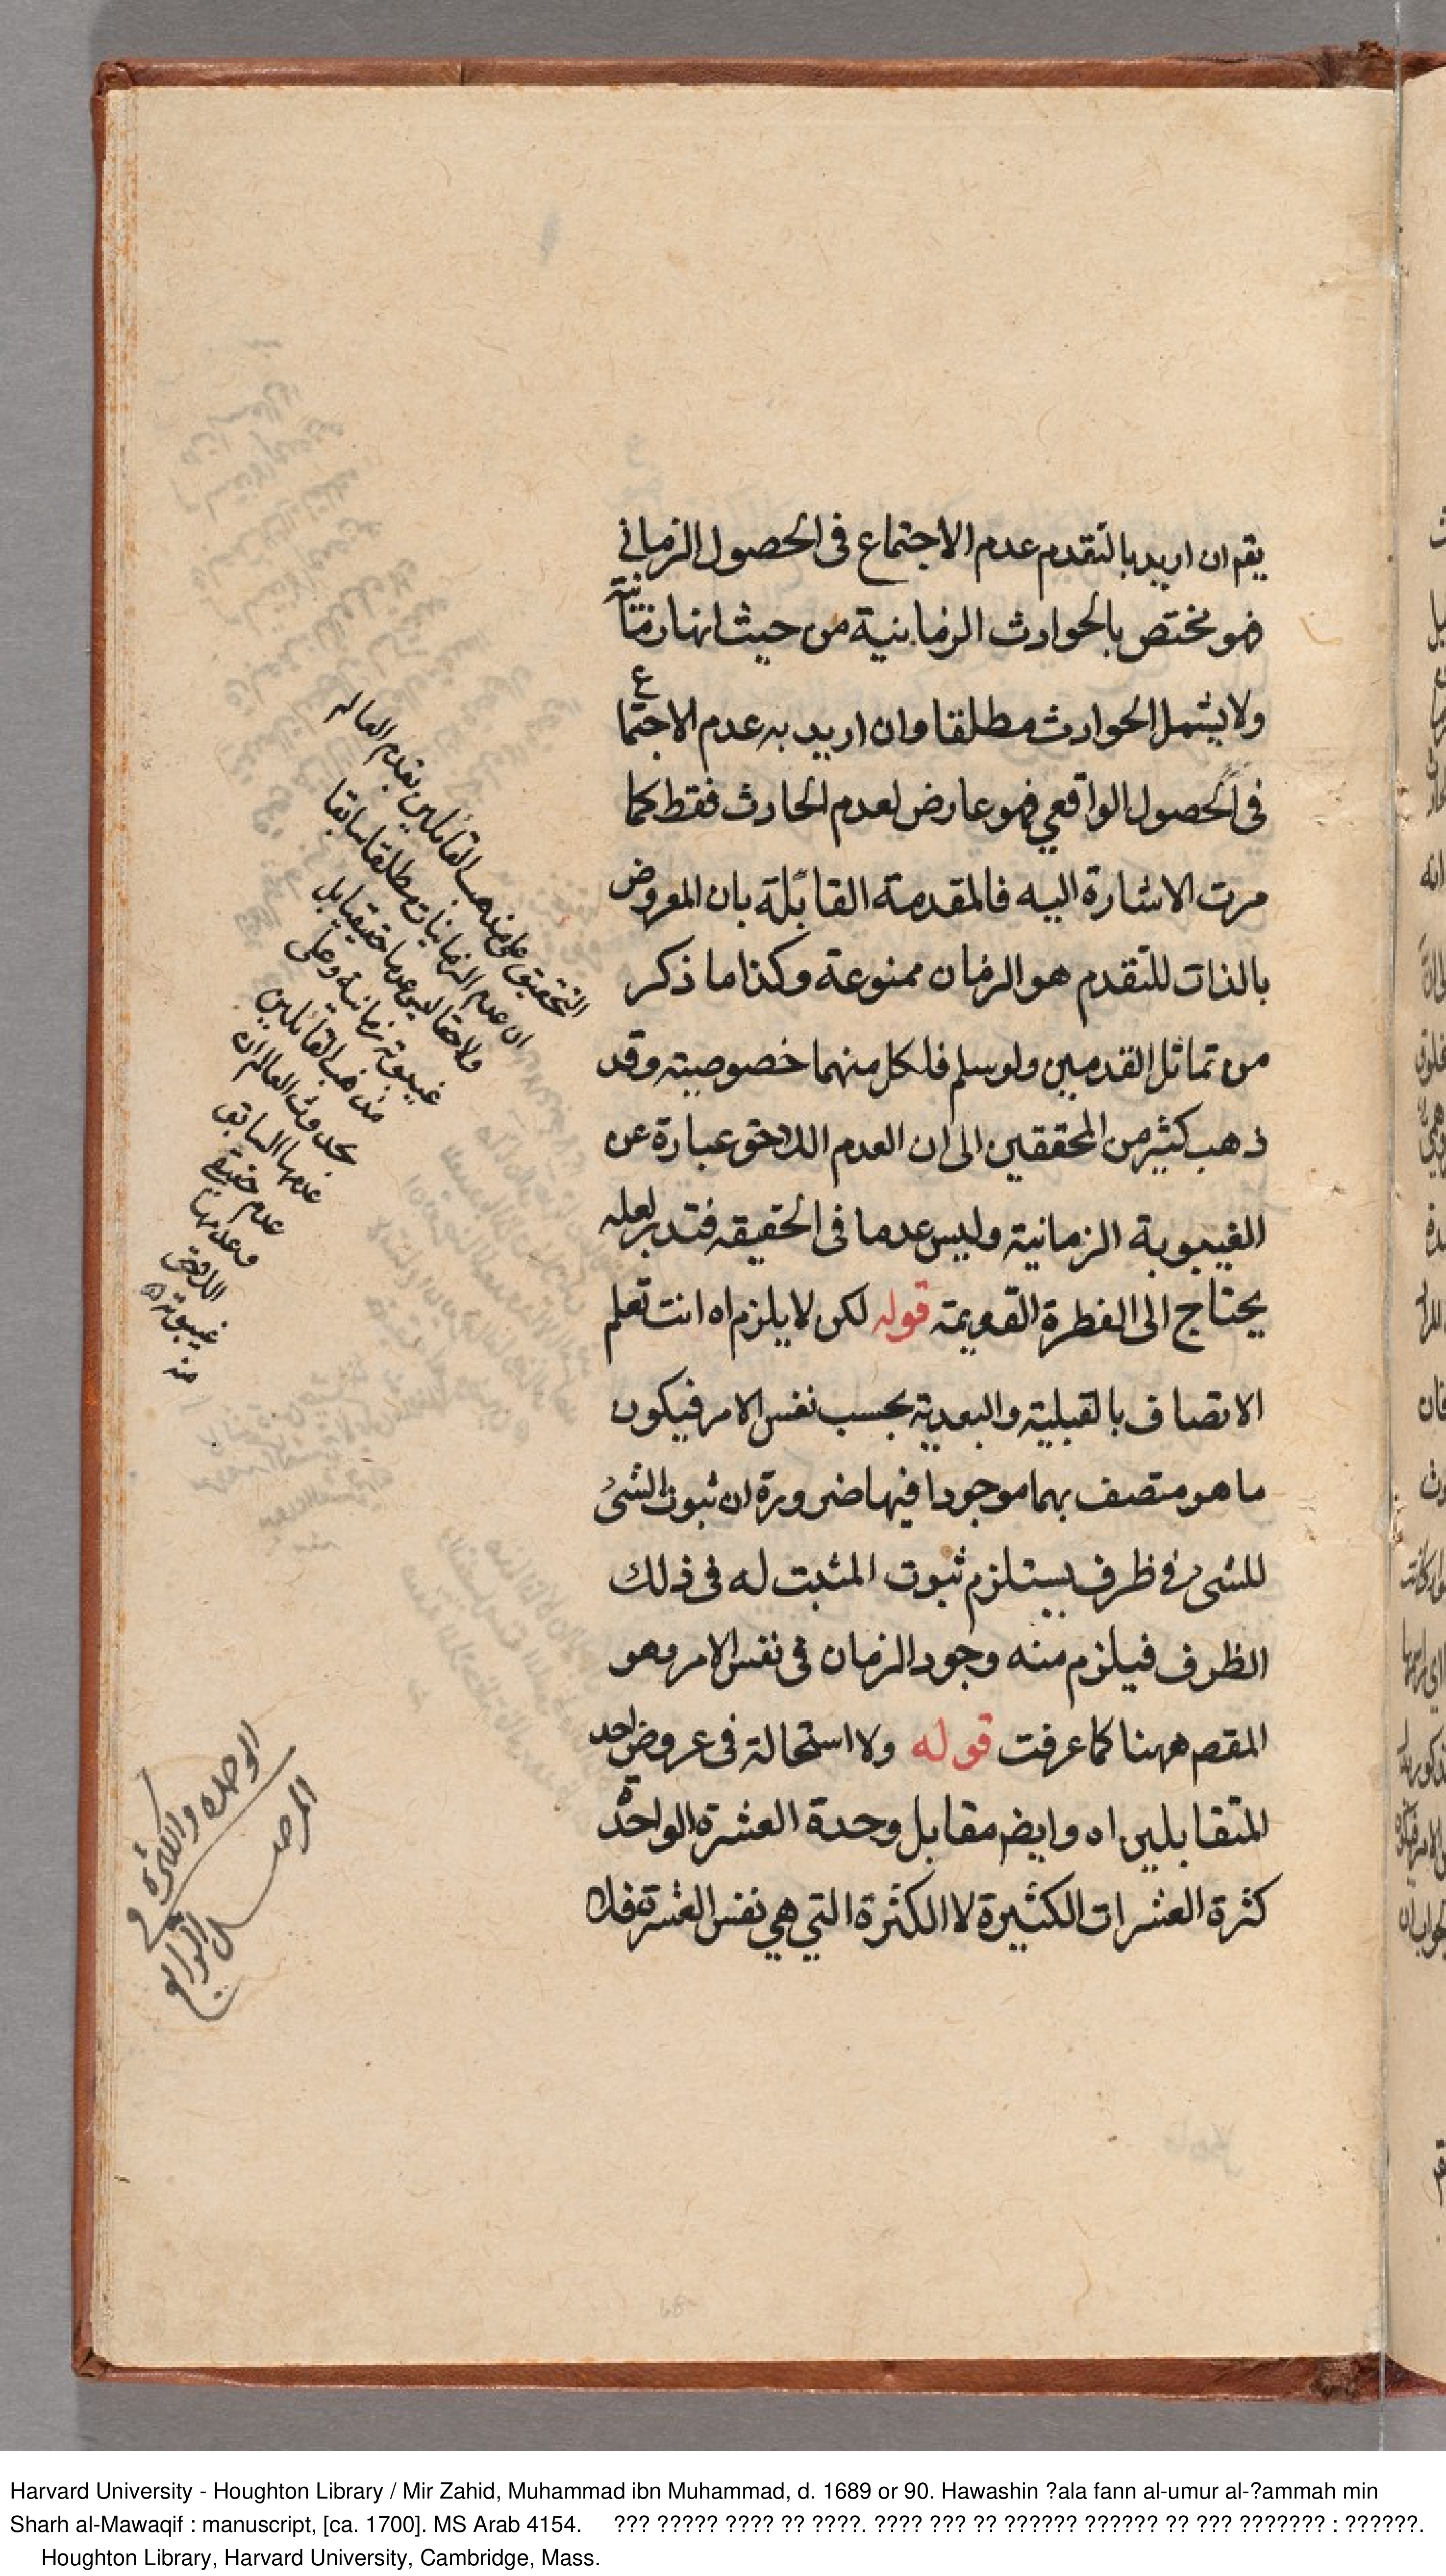 يقم ان اريد بالتقدم عدم الاجتماع فى الحصول الزمانى
فهو مختص بالحوادث الزمانية من حيث انها زمانية
ولا يشمل الحوادث مطلقا وان اريد به عدم الاجتماع
فى الحصول الواقعي فهو عارض لعدم الحادث فقط كما
مرت الاشارة اليه فالمقدمة القائلة بان المعروض
بالذات للتقدم هو الزمان ممنوعة وكذا ما ذكر
من تماثل القدمين ولو سلم فلكل منهما خصوصية وقد
ذهب كثير من المحققين الى ان العدم اللاحق عبارة عن
الغيبوبة الزمانية وليس عدما فى الحقيقه فتدبر لعله
يحتاج الى الفطرة القويمة قوله لكن لا يلزم اه انت تعلم
الاتصاف بالقبلية والبعدية بحسب نفس الامر فيكون
ما هو متصف بهما موجودا فيها ضرورة ان ثبوت الشئ
للشئ فى ظرف يستلزم ثبوت المثبت له فى ذلك
الظرف فيلزم منه وجود الزمان فى نفس الامر وهو
المقص ههنا كما عرفت قوله ولا استحالة فى عروض احد
المتقابلين اه وايض مقابل وحدة العشرة الواحدة
كثرة العشرات الكثيرة لا الكثرة التي هي نفس العشرة فلا
التحقيق على مذهب القائلين بقدم العالم
ان عدم الزمانيات مطلقا سابقا
ولاحقا ليس عدما حقيقيا بل
غيبوبة زمانية وعلى
مذهب القائلين
بحدوث العالم ان
عدمها السابق
عدم حقيقي
وعدمها
اللاحق
غيبوبة
منه
المرصد الرابع
فى الوحدة والكثرة
Harvard University - Houghton Library / Mir Zahid, Muhammad ibn Muhammad, d. 1689 or 90. Hawashin ?ala fann al-umur al-?ammah min
Sharh al-Mawaqif : manuscript, [ca. 1700]. MS Arab 4154. ??? ????? ???? ?? ????. ???? ??? ?? ?????? ?????? ?? ??? ??????? : ??????.
Houghton Library, Harvard University, Cambridge, Mass.